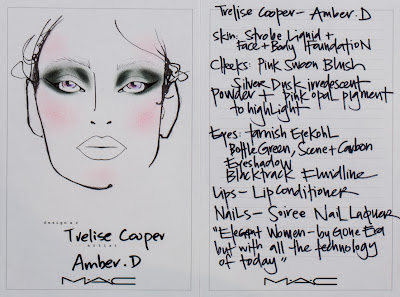 designer
Trelise Cooper
artist
Amber.D
MAC
Trelise Cooper - Amber.D
Skin: Strobe Liquid +
Face + Body Foundation
Cheeks: Pink Swoon Blush
Silver Dusk irredescent
powder + pink opal pigment
to highlight
Eyes: Tarnish Eyekohl
Bottle Green, Scene + Carbon
Eyeshadow
Blacktrack Fluidline
Lips - Lip Conditioner
Nails - Soiree Nail Laquer
"Elegant Women - by Gone Era
but with all the technology
of today"
MAC